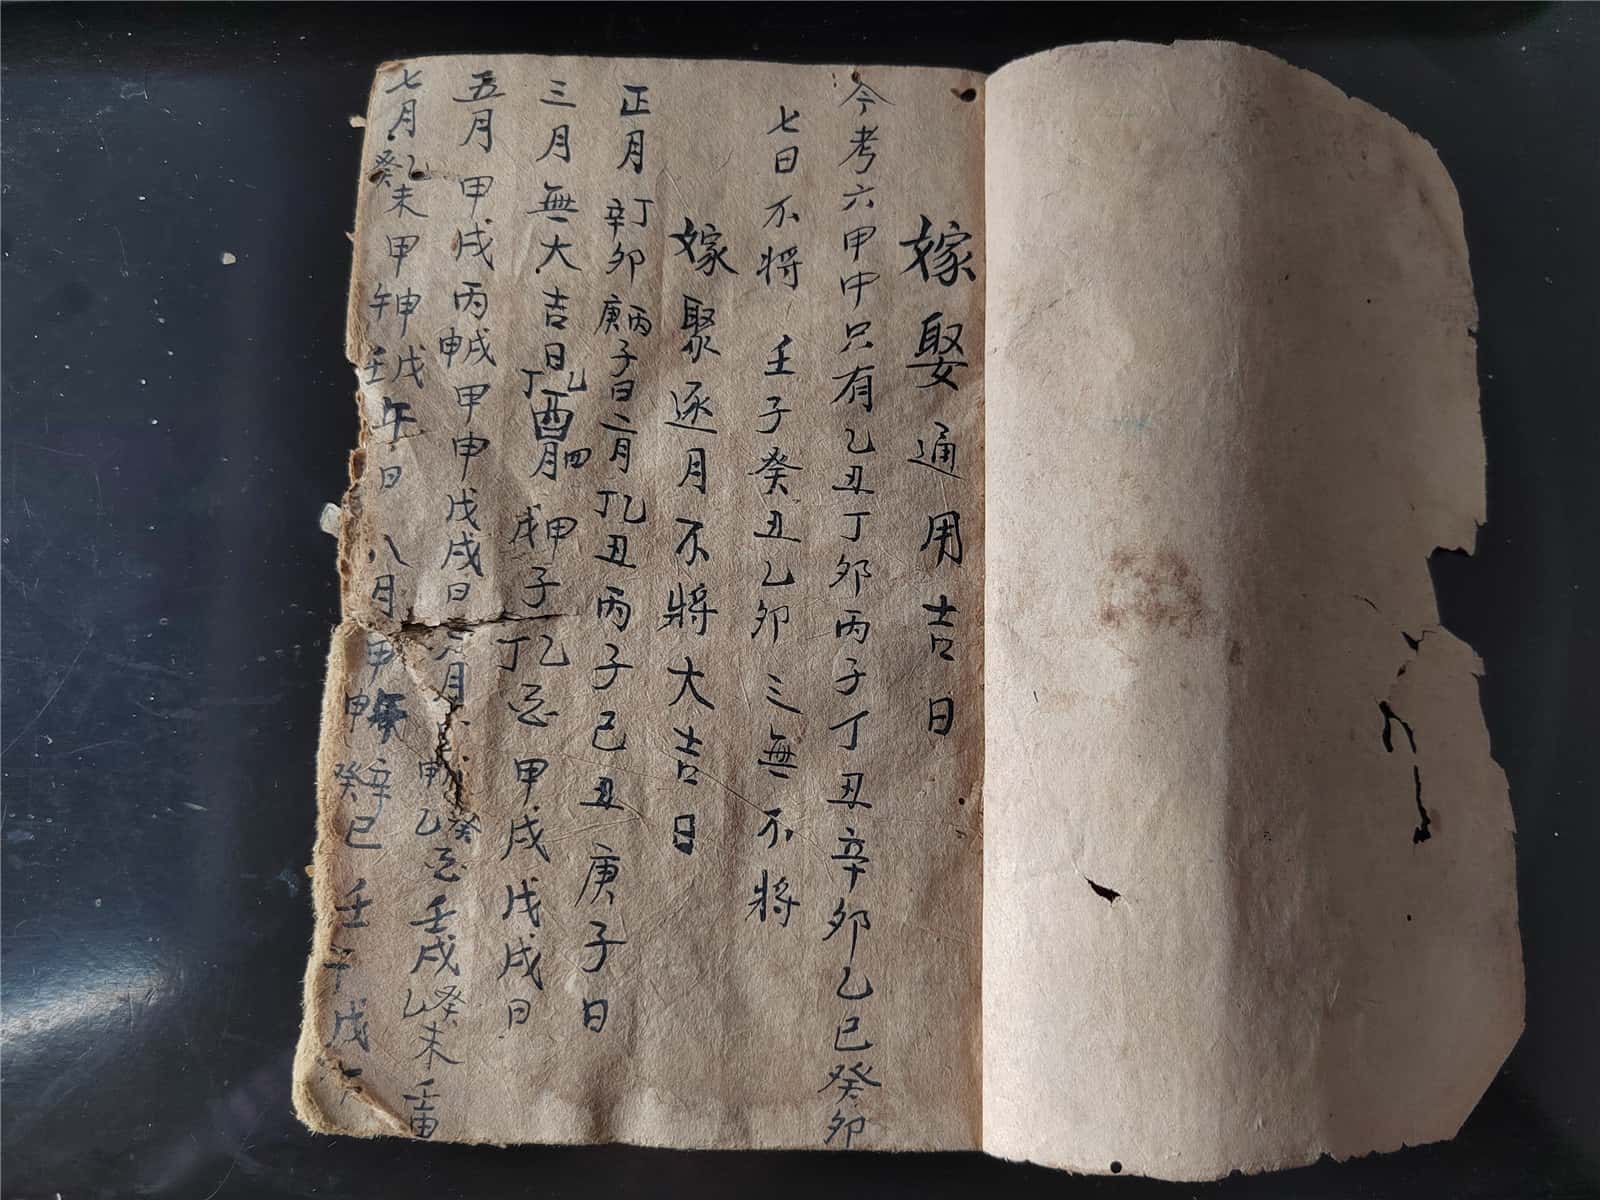 嫁娶通用吉日
今考六甲中只有乙丑丁卯丙子丁丑辛卯乙巳癸卯
七日不將 壬子癸丑乙卯 三無不將
嫁聚逐月不將大吉日
正月丁辛卯丙庚子日二月乙丁丑丙子己丑庚子日
三月無大吉日乙丁酉四月甲戌子乙丁 甲戌戊戌日
五月甲戌丙戌申甲申戊戌日 月 申癸乙 壬戌癸乙未壬申
七月乙癸未甲申午戌壬午日八月甲申 辛癸巳壬午戊